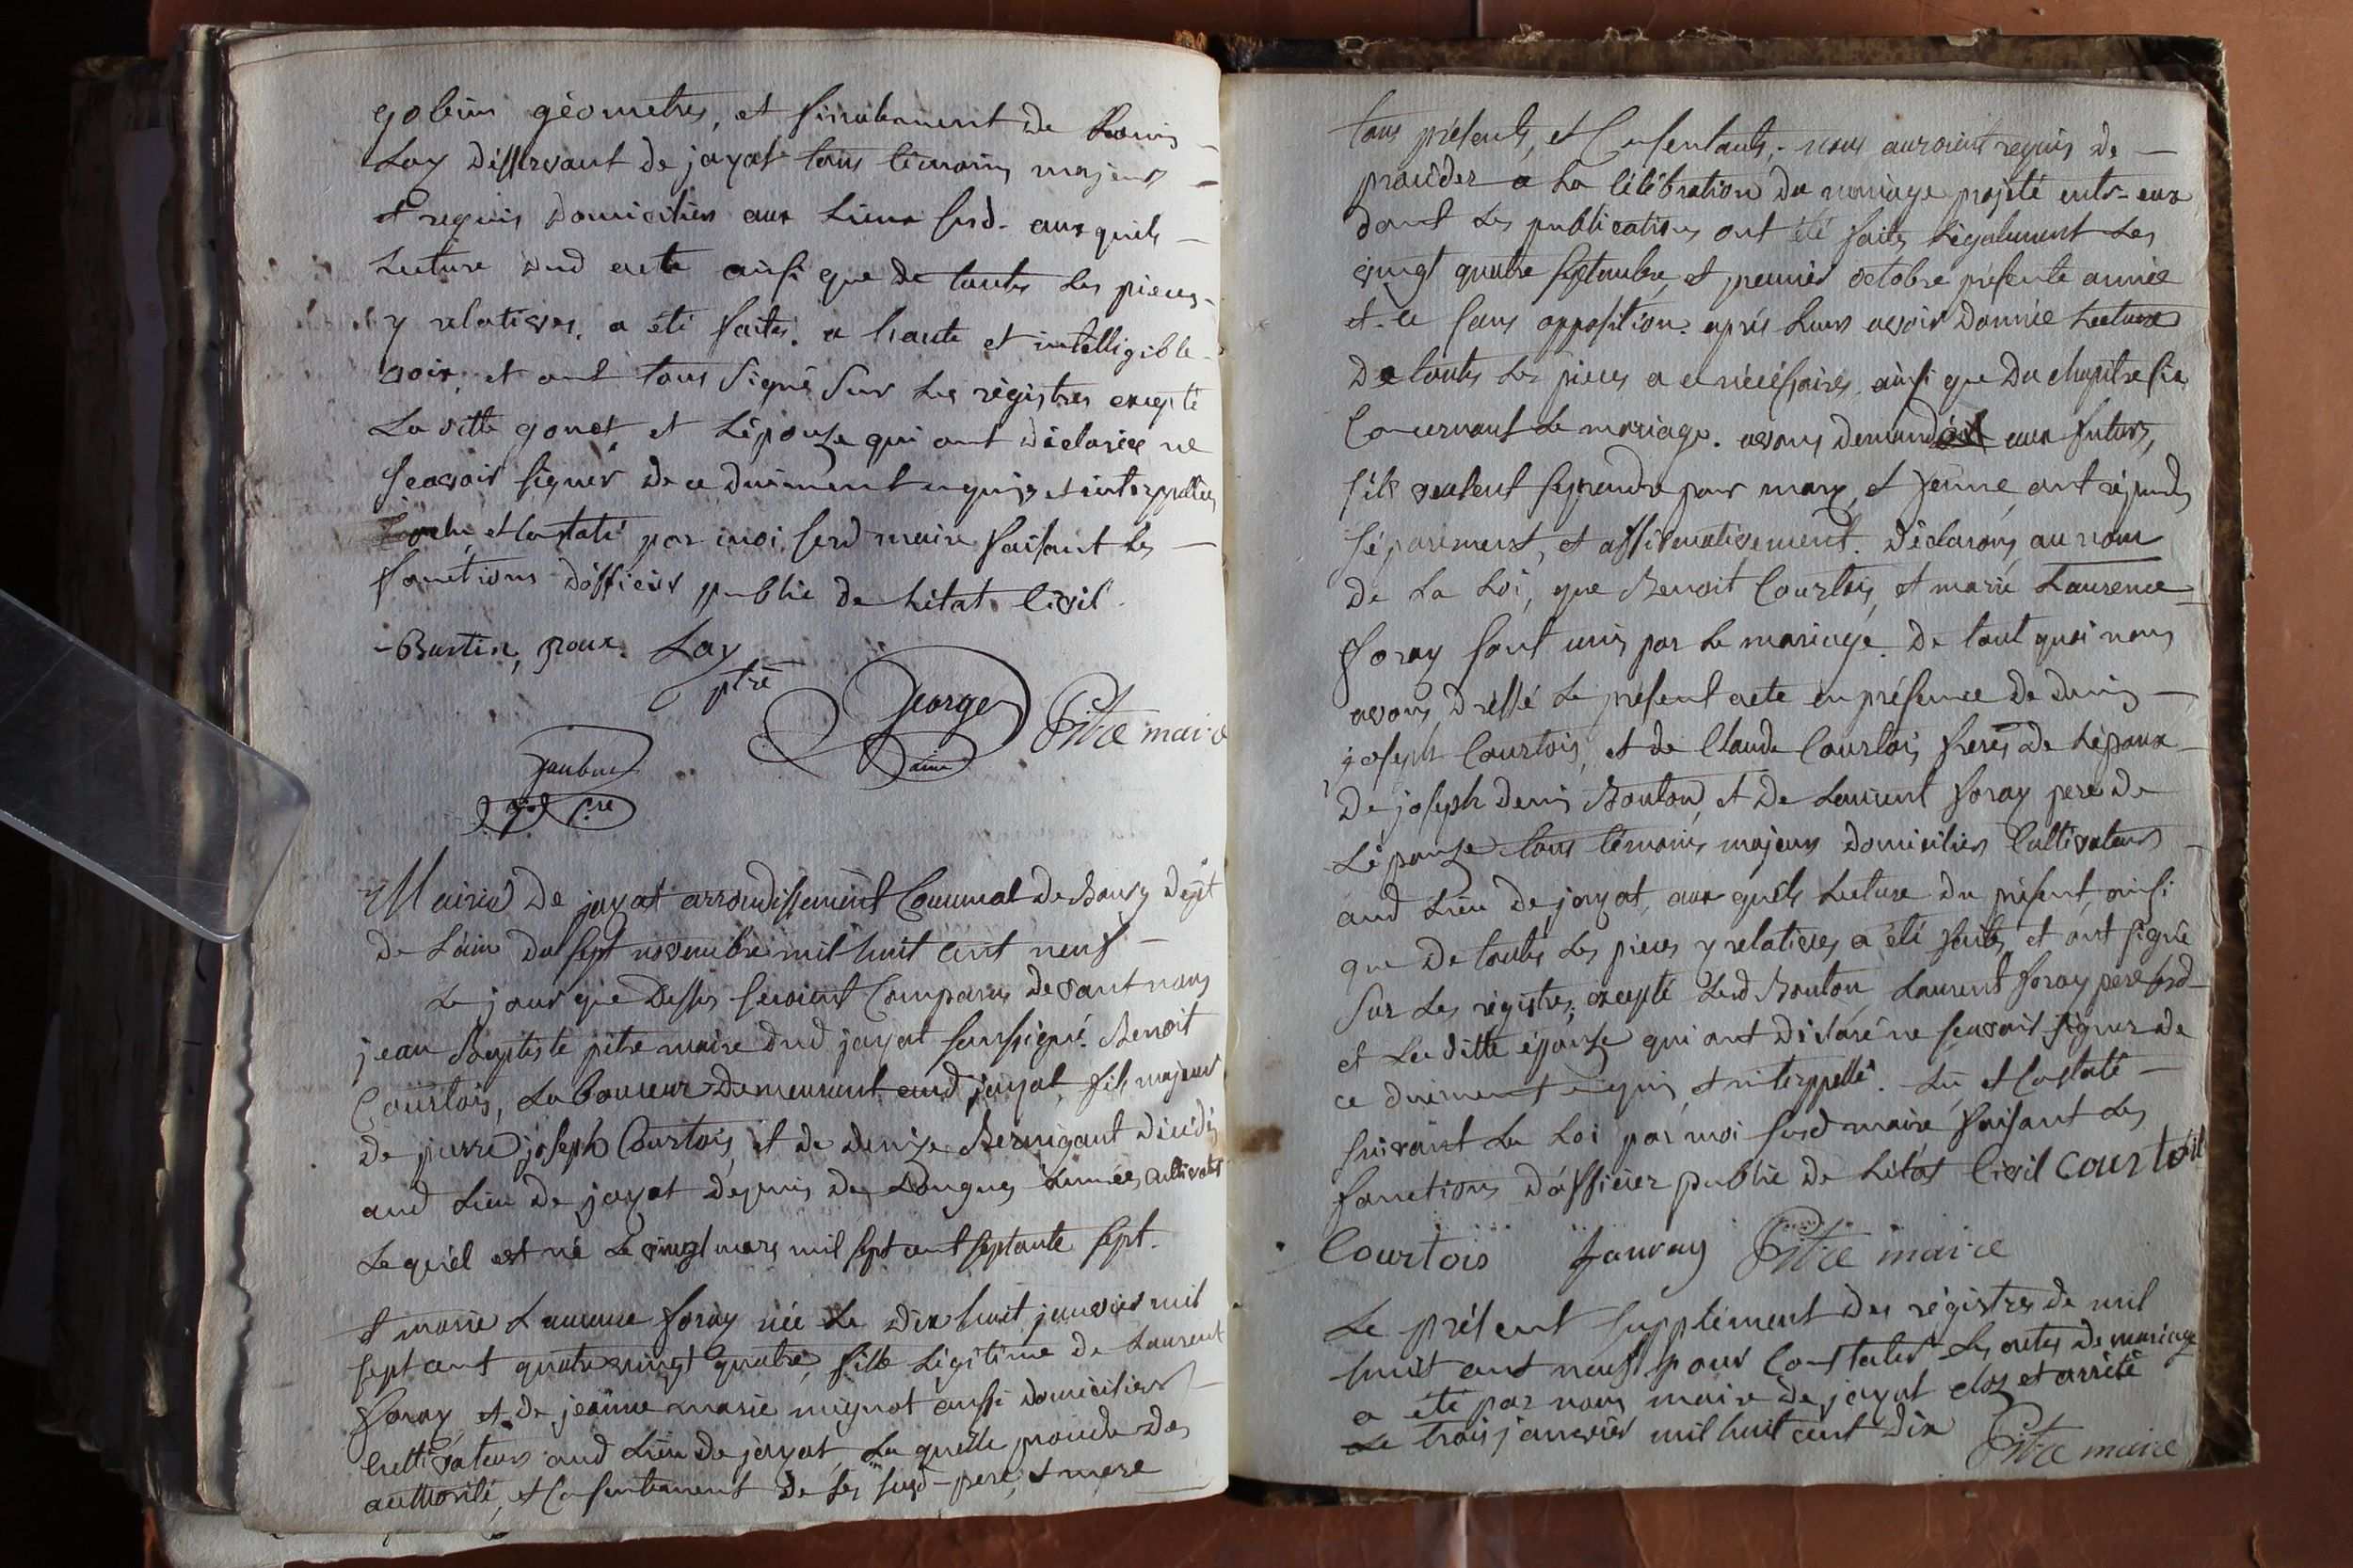 géometres, et finalement de
Lay désservant de jayat tous témoins majeurs
et requis domiciliés aux Lieux susd. aux quels
Lecture dud acte ainsi que de toutes Les pieces
y relatives, a été faite, a haute et intelligible
voix, et ont tous signé sur Les régistres excepté
La ditte gonet, et L'épouse qui ont déclarée ne
scavoir signer de ce duëment requis et interppellées
et Constaté par moi susd maire faisant Les
fonctions d'officier public de L'état Civil.
Burtin, proux. Lay
ptre
George
Pitre maire
ainé
Mairie de jayat arrondissement Communal de Bourg dept
de L'ain du sept novembre mil huit cent neuf
Le jour que dessus seroient Comparus devant nous
jean Baptiste pitre maire dud jayat soussigné. Benoit
Courtois, Laboureur demeurant aud jayat, fils majeur
de pierre joseph Courtois, et de denise décédés
aud Lieu de jayat depuis des Longues années, cultivateurs
Le quel est né Le vingt mars mil sept cent septante sept.
et marie Laurence foray née Le dix huit janvier mil
sept cent quatre vingt quatre, fille Légitime de Laurent
foray, et de jeanne marie mignot aussi domiciliés
Cultivateurs aud Lieu de jayat, La quelle procede des
authorité, et Consentement de ses susd pere, et mere
tous présents, et Consentants, nous auroient requis de
procéder a La Célébration du mariage projété entr-eux
dont Les publications ont été faites Légalement Les
vingt quatre septembre, et premier octobre présente année
et ce sans opposition. aprés Leurs avoir donnée Lecture
de toutes Les pieces a ce nécéssaires, ainsi que du chapitre six
Concernant Le mariage. avons demandé aux futurs,
s'ils veulent se prendre pour mary, et femme, ont répondu
séparement, et affirmativement. déclarons, au nom
de La Loi, que Benoit Courtois, et marie Laurence
foray sont unis par Le mariage. de tout quoi nous
avons dréssé Le présent acte en présence de denis
joseph Courtois, et de Claude Courtois freres de L'époux
de joseph denis Bouton, et de Laurent foray pere de
L'épouse tous témoins majeurs domiciliés Cultivateurs
aud Lieu de jayat, aux quels Lecture du présent, ainsi
que de toutes Les pieces y relatives a été faites, et ont signé
sur Les régistres, excepté Led Bouton, Laurent foray pere susd
et La ditte épouse qui ont déclaré ne scavoir signer de
ce duëment requis, et interppellé. Lu, et Constaté
suivant La Loi par moi susd maire faisant Les
fonctions d'officier public de L'état Civil Courtois
Courtois Pitre maire
Le présent supplément des régistres de mil
huit cent neuf pour Constater Les actes de mariage
a été par nous maire de jayat clos et arrêté
Le trois janvier mil huit cent dix Pitre maire